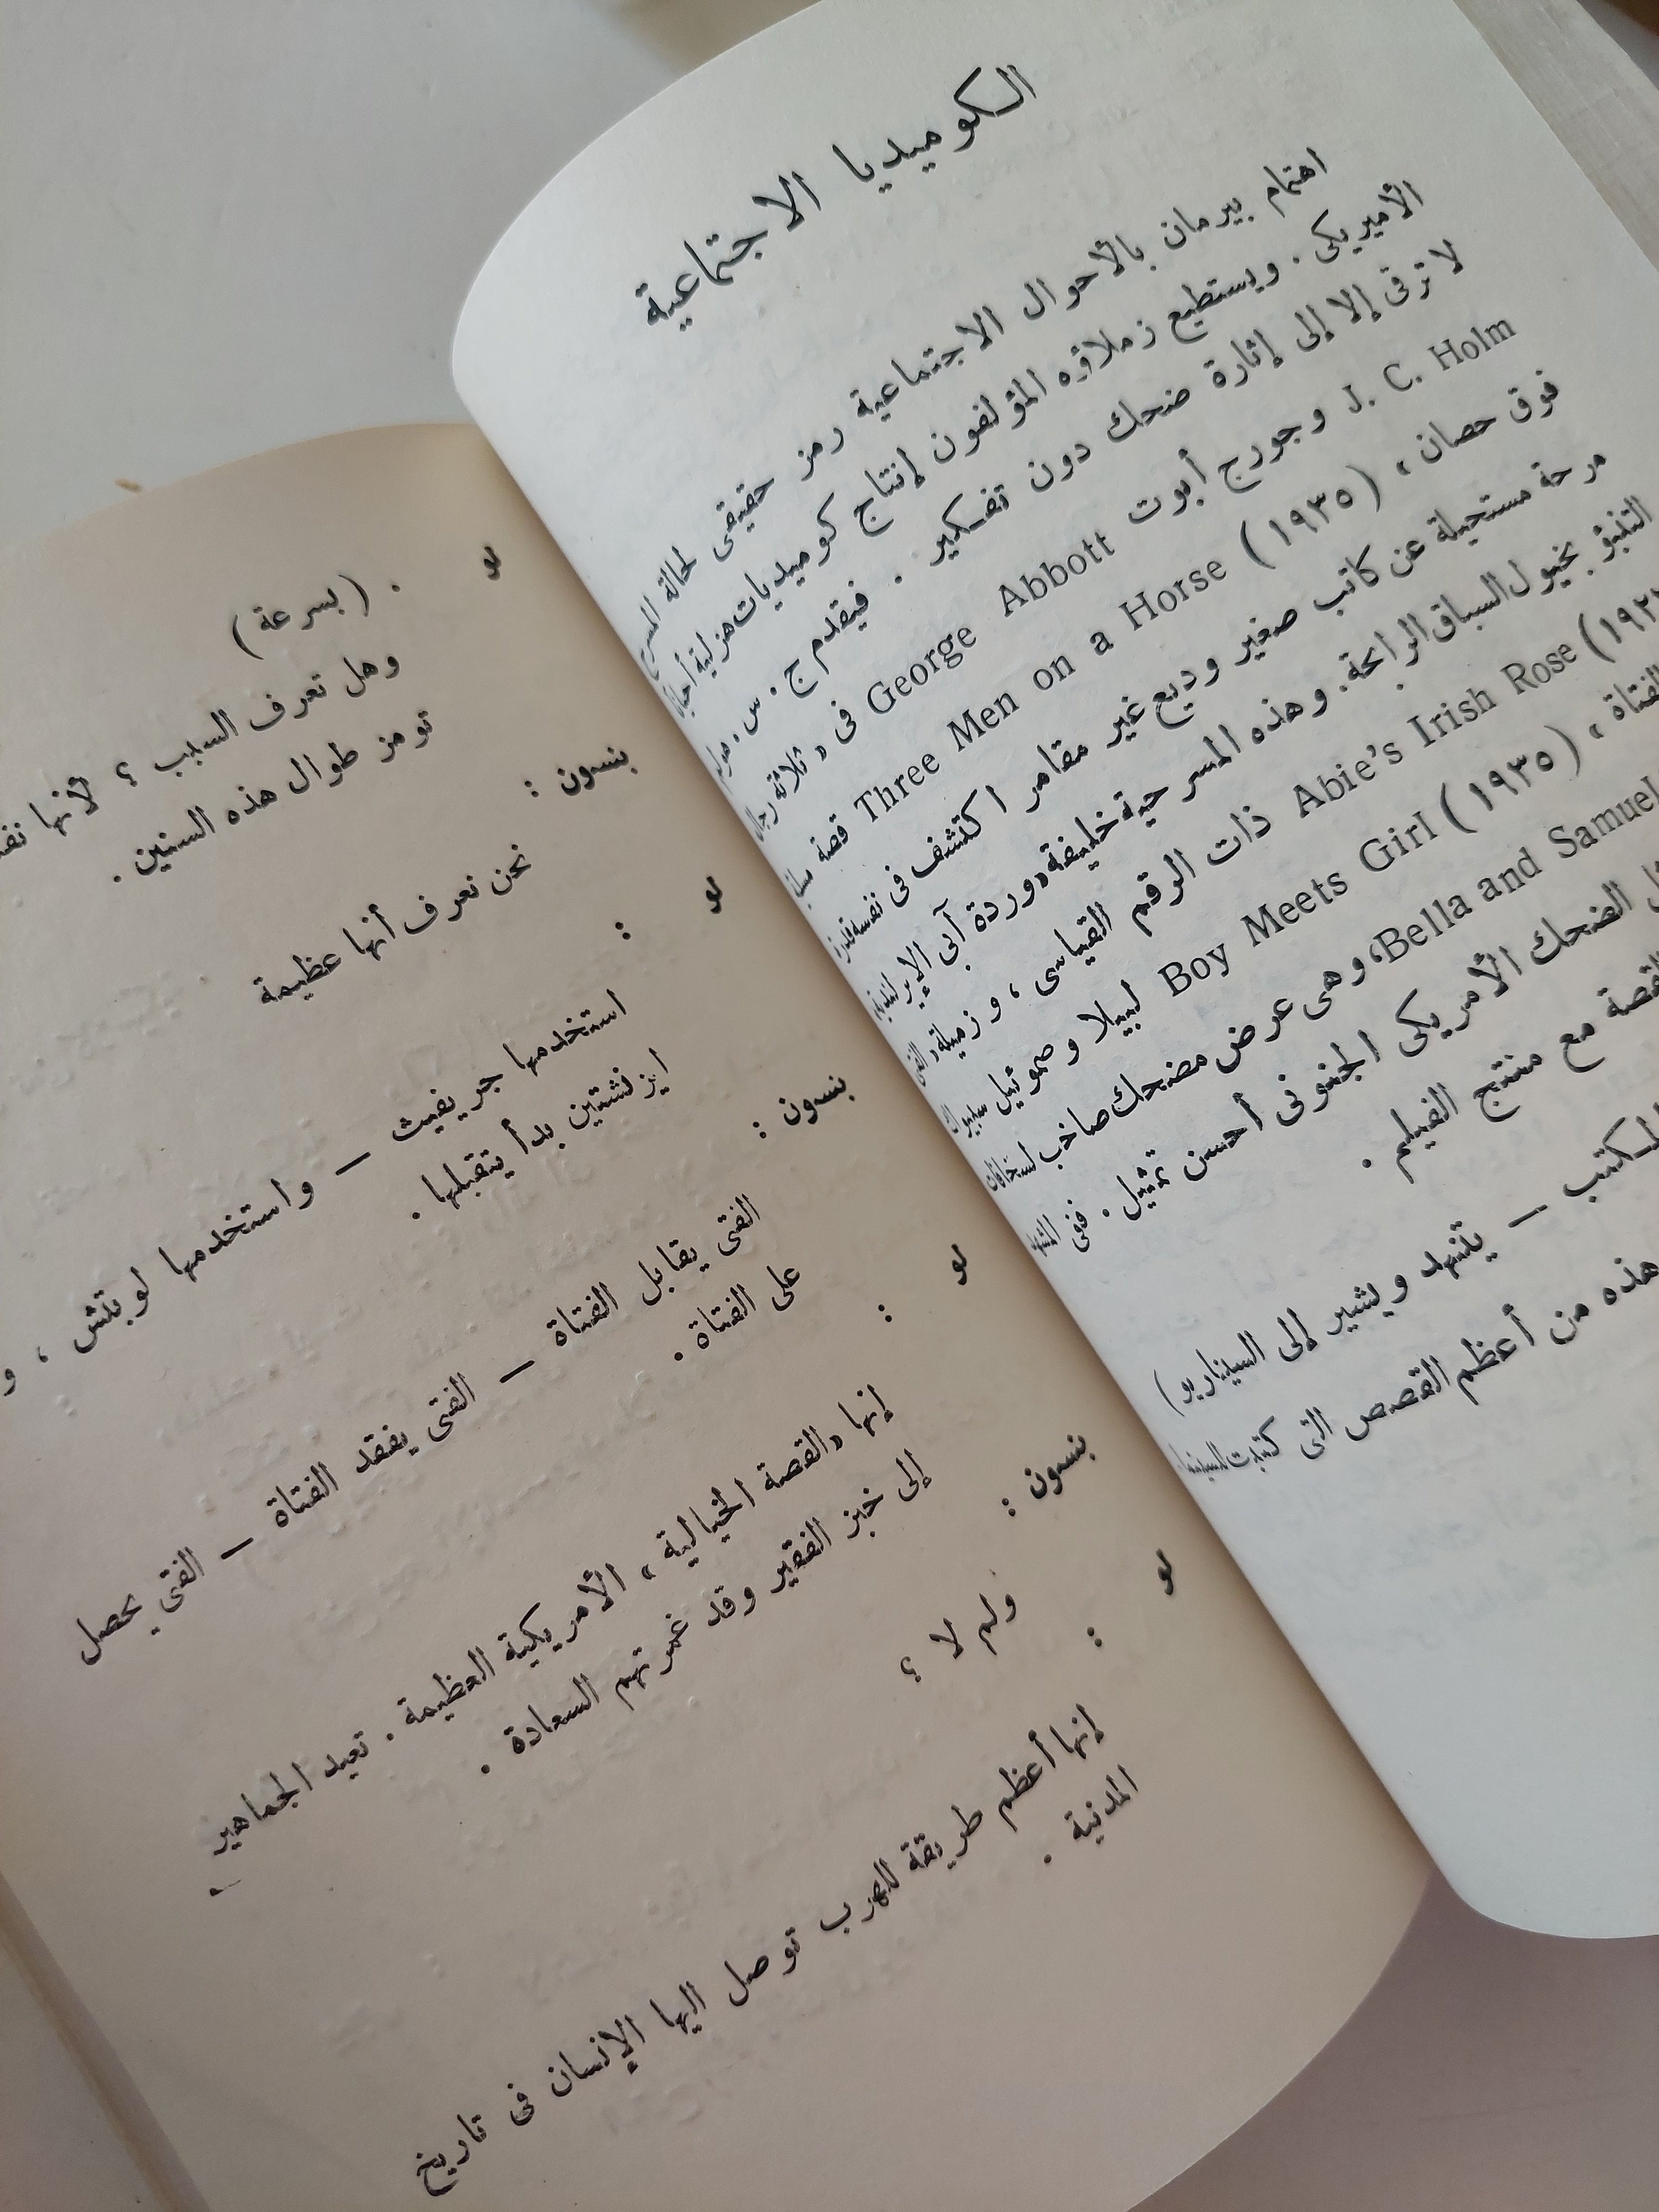 الكوميديا الاجتماعية
اهتمام بيرمان بالأحوال الاجتماعية رمز حقيقى لحالة المسرح
الأميريكى . ويستطيع زملاؤه المؤلفون إنتاج كوميديات هزلية أحيانا
لا ترقى إلا إلى إثارة ضحك دون تفكير . فيقدم ج . س . هولم
J. C. Holm وجورج أبوت George Abbott فى « ثلاثة رجال
فوق حصان » Three Men on a Horse (١٩٣٥) قصة
مرحة مستحيلة عن كاتب صغير وديع غير مقامر اكتشف فى نفسه قدرة
التنبؤ بخيول السباق الرابحة . وهذه المسرحية خليفة « وردة آبى الإيرلندية »
Abie's Irish Rose ذات الرقم القياسى ، وزميلة « الفتى
الفتاة » Boy Meets Girl (١٩٣٥) لبيلا وصموئيل سبيواك
Bella and Samuel ، وهى عرض مضحك صاخب لسخافات
الضحك الأمريكى الجنونى أحسن تمثيل . ففى المشهد
القصة مع منتج الفيلم .
المكتب — يتنهد ويشير إلى السيناريو )
هذه من أعظم القصص التى كتبت للسينما .
لو . ( بسرعة )
وهل تعرف السبب ؟ لأنها
تومز طوال هذه السنين .
بنسون : نحن نعرف أنها عظيمة
لو : استخدمها جريفيث — واستخدمها لوبتش ، و
ايزنشتين بدأ يتقبلها .
بنسون : الفتى يقابل الفتاة — الفتى يفقد الفتاة — الفتى يحصل
على الفتاة .
لو : إنها « القصة الخيالية » الأمريكية العظيمة . تعيد الجماهير
إلى خبز الفقير وقد غمرتهم السعادة .
بنسون : ولم لا ؟
لو : إنها أعظم طريقة للهرب توصل اليها الإنسان فى تاريخ
المدنية .